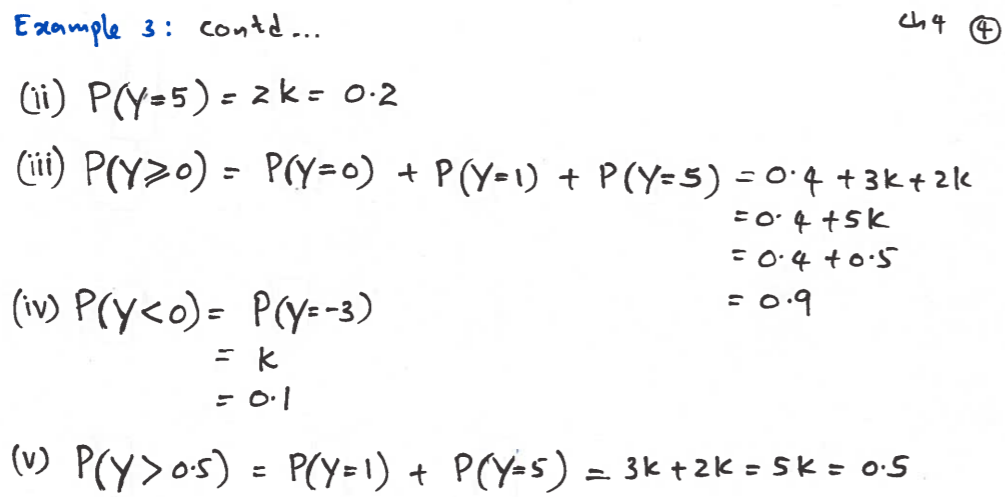 Example 3: contd... ch 4 ④
(ii) P(Y=5) = 2k = 0.2
(iii) P(Y⩾0) = P(Y=0) + P(Y=1) + P(Y=5) = 0.4 + 3k + 2k
= 0.4 + 5k
= 0.4 + 0.5
= 0.9
(iv) P(Y<0) = P(Y=-3)
= k
= 0.1
(v) P(Y>0.5) = P(Y=1) + P(Y=5) = 3k + 2k = 5k = 0.5